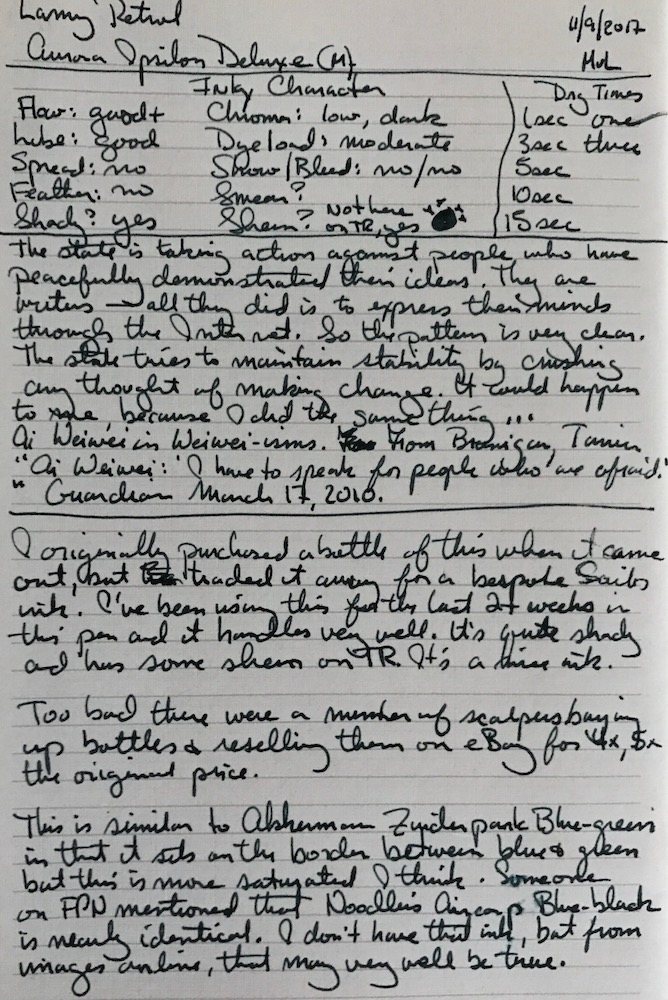 Lamy Petrol 11/9/2017
Aurora Ipsilon Deluxe (M) MvL
Inky Character Dry Times
Flow: good+ Chroma: low, dark 1sec one
Lube: good Dye load: moderate 3sec three
Spread: no Show/Bleed: no/no 5sec
Feather: no Smear? 10sec
Shady? yes Sheen? Not here on TR, yes 15sec
The state is taking action against people who have
peacefully demonstrated their ideas. They are
writers — all they did is to express their minds
through the Internet. So the pattern is very clear.
The state tries to maintain stability by crushing
any thought of making change. It could happen
to me, because I did the same thing ...
Ai Weiwei in Weiwei-isms. From Branigan, Tania
"Ai Weiwei: 'I have to speak for people who are afraid.'
" Guardian March 17, 2010.
I originally purchased a bottle of this when it came
out, but traded it away for a bespoke Sailor
ink. I've been using this for the last 2+ weeks in
this pen and it handles very well. It's quite shady
and has some sheen on TR. It's a nice ink.
Too bad there were a number of scalpers buying
up bottles & reselling them on eBay for 4x, 5x
the original price.
This is similar to Akkerman Zuiderpark Blue-green
in that it sits on the border between blue & green
but this is more saturated I think. Someone
on FPN mentioned that Noodler's Aircorp Blue-black
is nearly identical. I don't have that ink, but from
images online, that may very well be true.